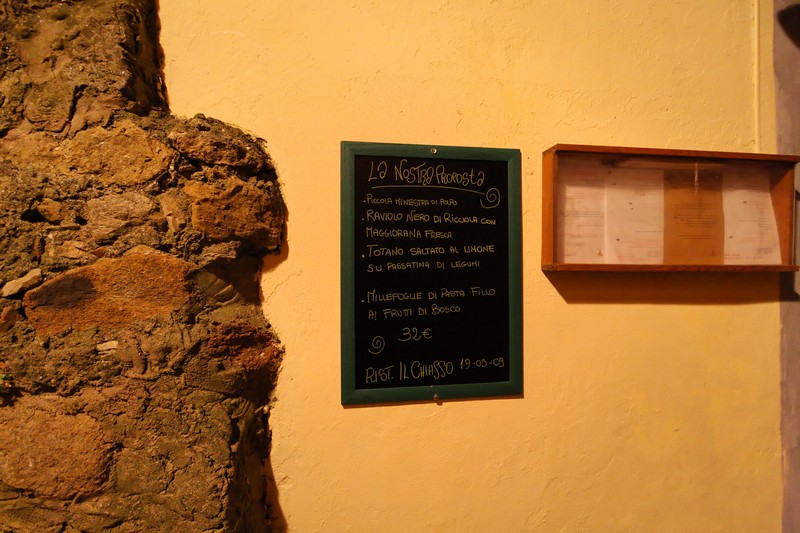 La Nostra Proposta
. Piccola minestra di polpo
. Raviolo Nero di Ricciola con
Maggiorana Fresca
. Totano saltato al limone
su passatina di legumi
. Millefoglie di Pasta Fillo
ai Frutti di Bosco
32€
Rist. Il Chiasso 19-09-09